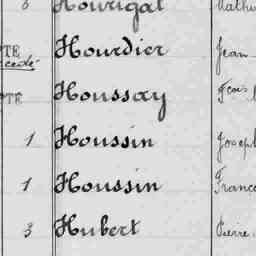 6 Hourigal Mathu
TE Hourdier Jean
cédé
PTE Houssay Fçois
1 Houssin Joseph
1 Houssin Franço
3 Hubert Pierre